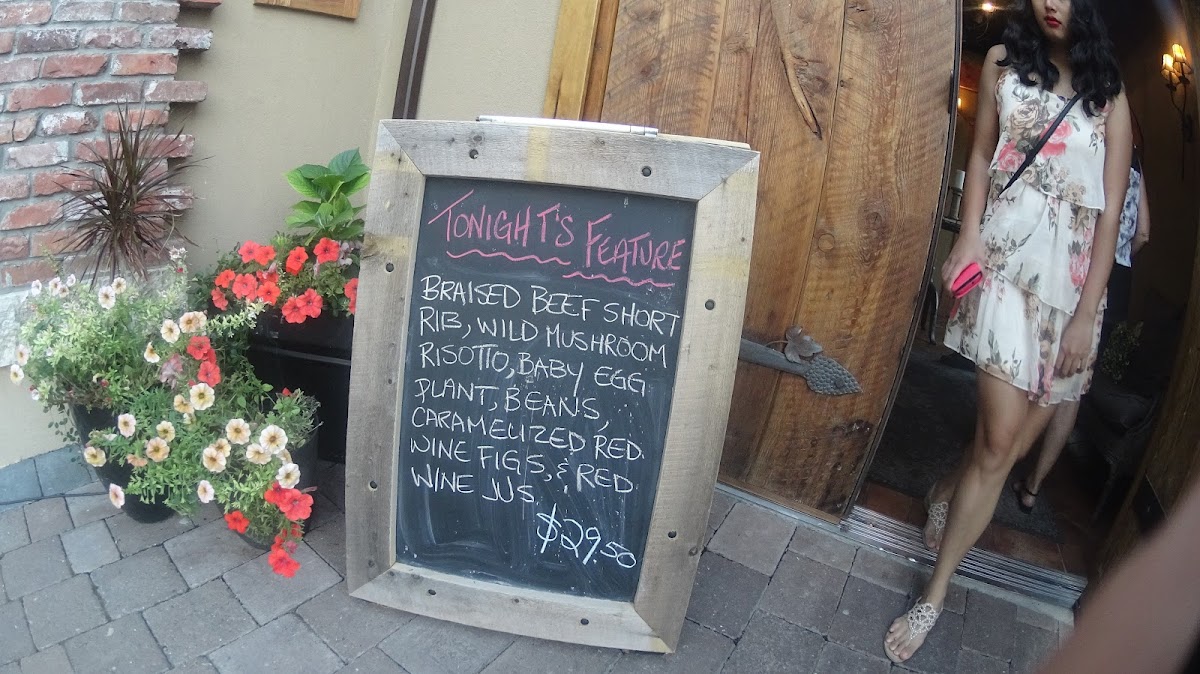 TONIGHT'S FEATURE
BRAISED BEEF SHORT
RIB, WILD MUSHROOM
RISOTTO, BABY EGG
PLANT, BEANS,
CARAMELIZED RED
WINE FIGS, & RED
WINE JUS
$29.50